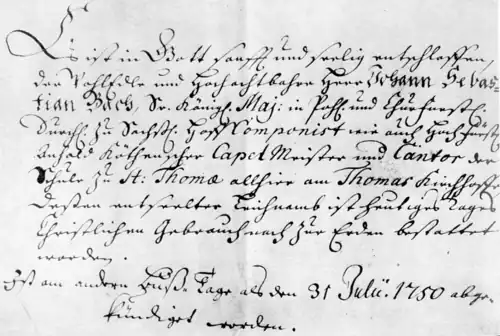 Es ist in Gott sanfft und seelig entschlaffen,
der Wohledle und Hochachtbahre Herr Johann Sebas-
tian Bach, Sr. Königl. Maj: in Pohl. und Churfürstl.
Durchl. zu Sachß. Hoff Componist wie auch Hochfürstl.
Anhalt Köthenischer Capel Meister und Cantor der
Schule zu St: Thomæ allhier am Thomas Kirchhoffe
dessen entseelter Leichnams ist heutiges Tages
Christlichen Gebrauch nach zur Erden bestattet
worden.
Ist am andern Buß-Tage als den 31 Julii. 1750 abge-
kündiget worden.